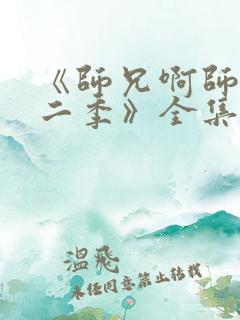 《师兄啊师
二季》全集
温飛
未经同意禁止转载